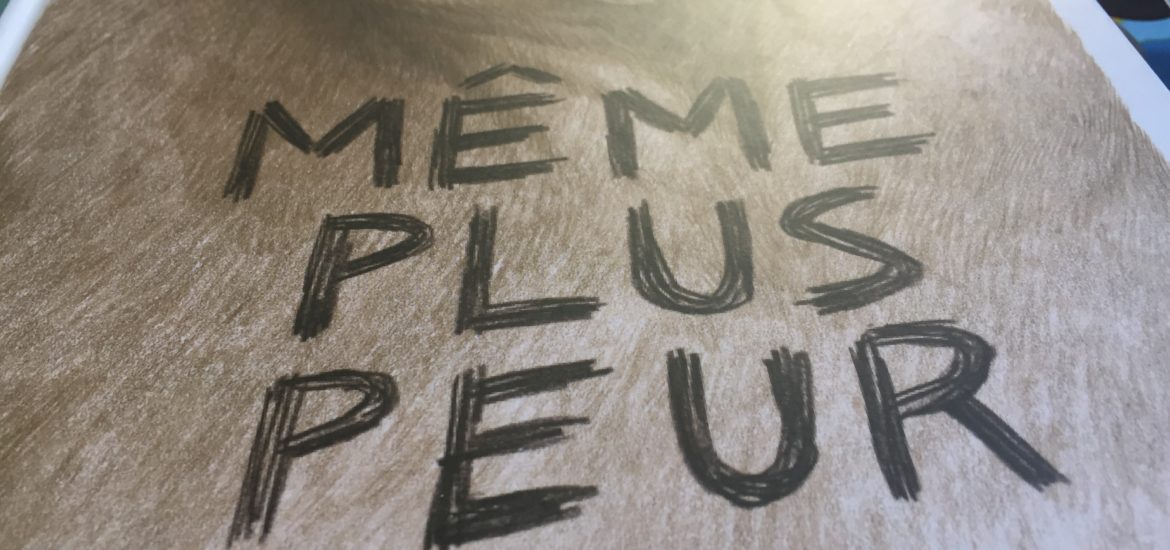 MÊME
PLUS
PEUR